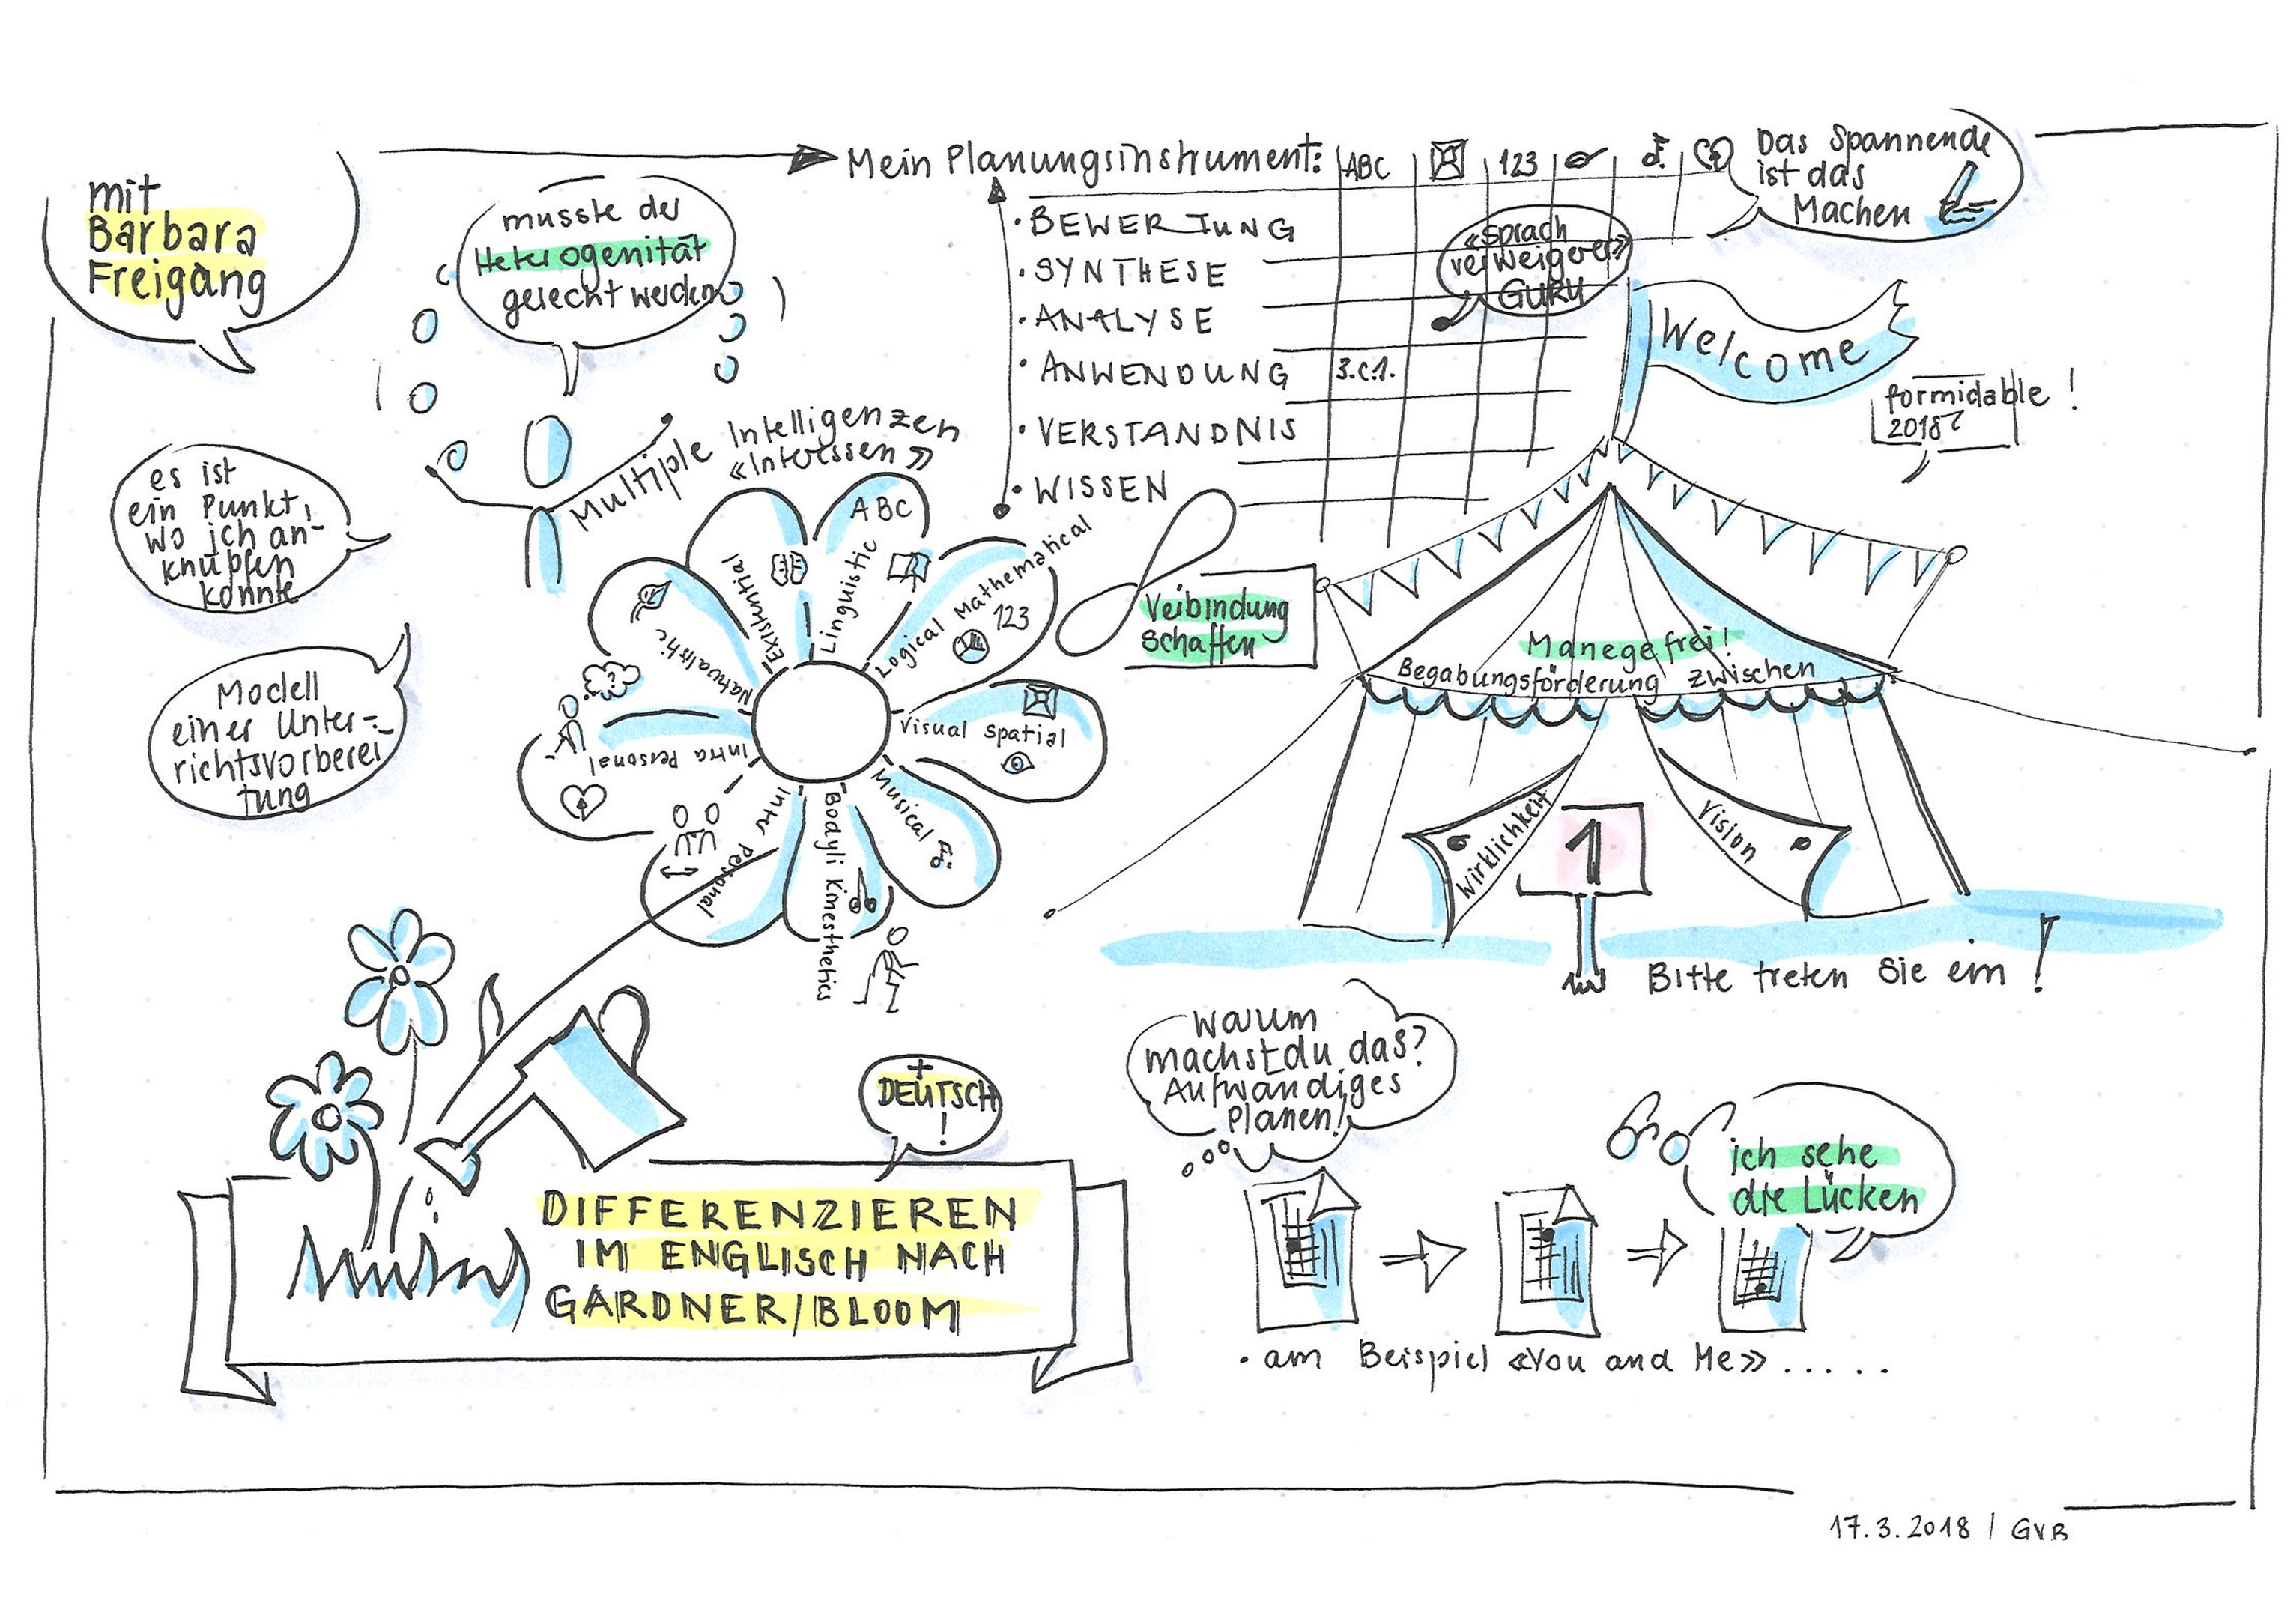 mit
Barbara
Freigang
musste der
Heterogenität
gerecht werden
es ist
ein Punkt,
wo ich an-
knüpfen
konnte
Modell
einer Unter-
richtsvorberei
tung
Multiple Intelligenzen
«Interessen»
ABC
Linguistic
Logical Mathematical
123
Visual spatial
Musical
Bodyli Kinesthetics
Inter Personal
Intra Personal
?
Naturalistic
Existential
Mein Planungsinstrument:
ABC
123
• BEWERTUNG
• SYNTHESE
• ANALYSE
• ANWENDUNG
3.C.1.
• VERSTÄNDNIS
• WISSEN
«Sprach
verweigerer»
GURU
Das Spannende
ist das
Machen
Welcome
formidable!
2018
Verbindung
schaffen
Manege frei!
Begabungsförderung zwischen
Wirklichkeit
1
Vision
Bitte treten Sie ein!
Warum
machst du das?
Aufwändiges
Planen!
ich sehe
die Lücken
• am Beispiel «You and Me» . . . . .
+
DEUTSCH
!
DIFFERENZIEREN
IM ENGLISCH NACH
GARDNER/BLOOM
17.3.2018 | GVB